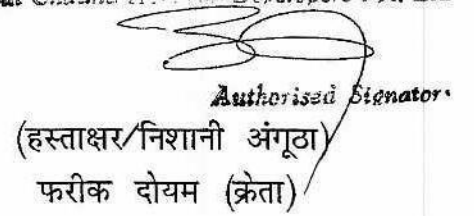 Authorised Signator
(हस्ताक्षर/निशानी अंगूठा)
फरीक दोयम (क्रेता)